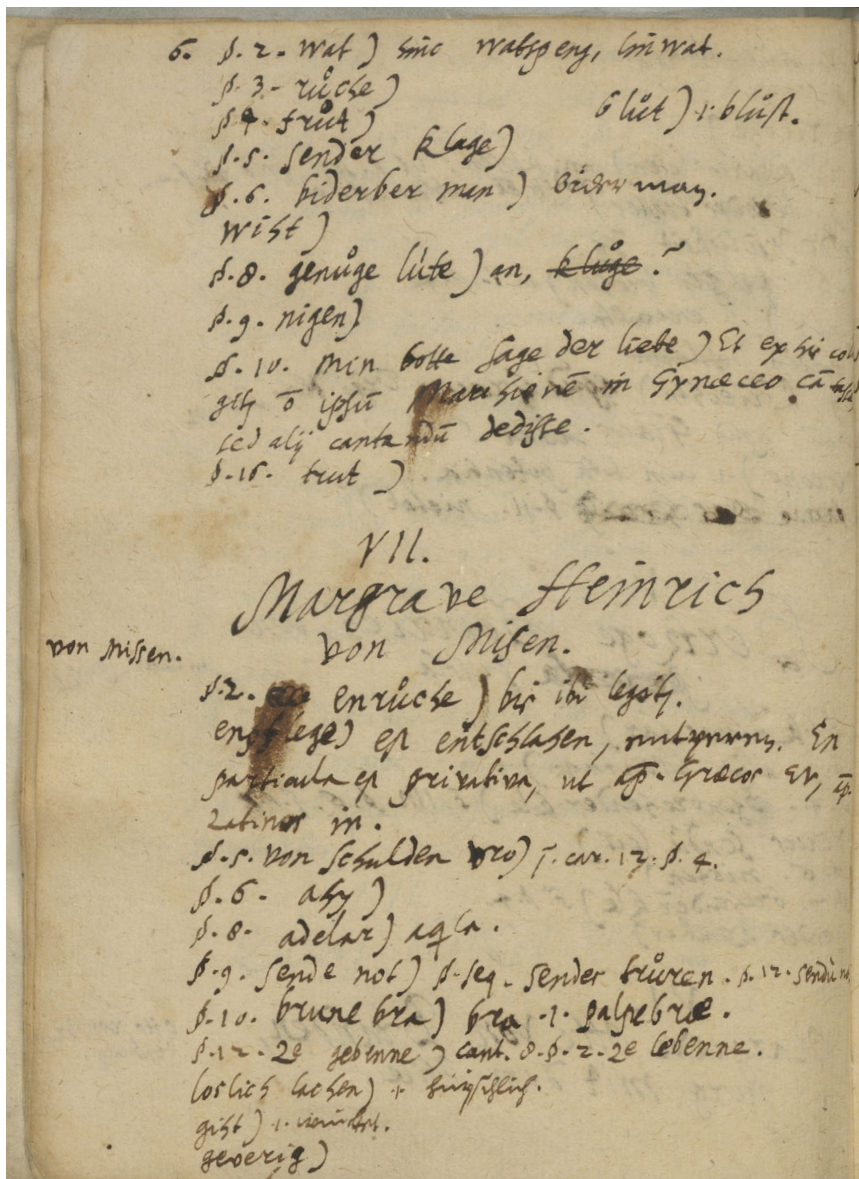 6. §. 2. wat) hinc watgzeng, linwat.
§. 3. růche)
§. 4. frůt) blůt) .i. blůst.
§. 5. sender klage)
§. 6. biderber man) biderman.
wiht)
§. 8. genůge lúte) an, kluoge?
§. 9. nigen)
§. 10. min botte sage der liebe) Et ex hic
ipsū in Gynæceo
sed alij cantandū dedisse.
§. 16. trut)
VII.
Margrave Heinrich
von Misen.
von Missen.
§. 2. enrůche) bis ibi
enpflege) est entschlahen, En
particula est privativa, ut ap. Græcos
Latinos in.
§. 5. von schulden vro) j. car. 12. §. 4.
§. 6. ahy)
§. 8. adelar) aqla.
§. 9. sende not) §. seq. sender trůren. §. 12.
§. 10. brune bra) bra .i. palpebræ.
§. 12. ze gebenne) cant. 8. §. 2. ze lebenne.
loslich lachen) .i.
giht) .i.
geverig)